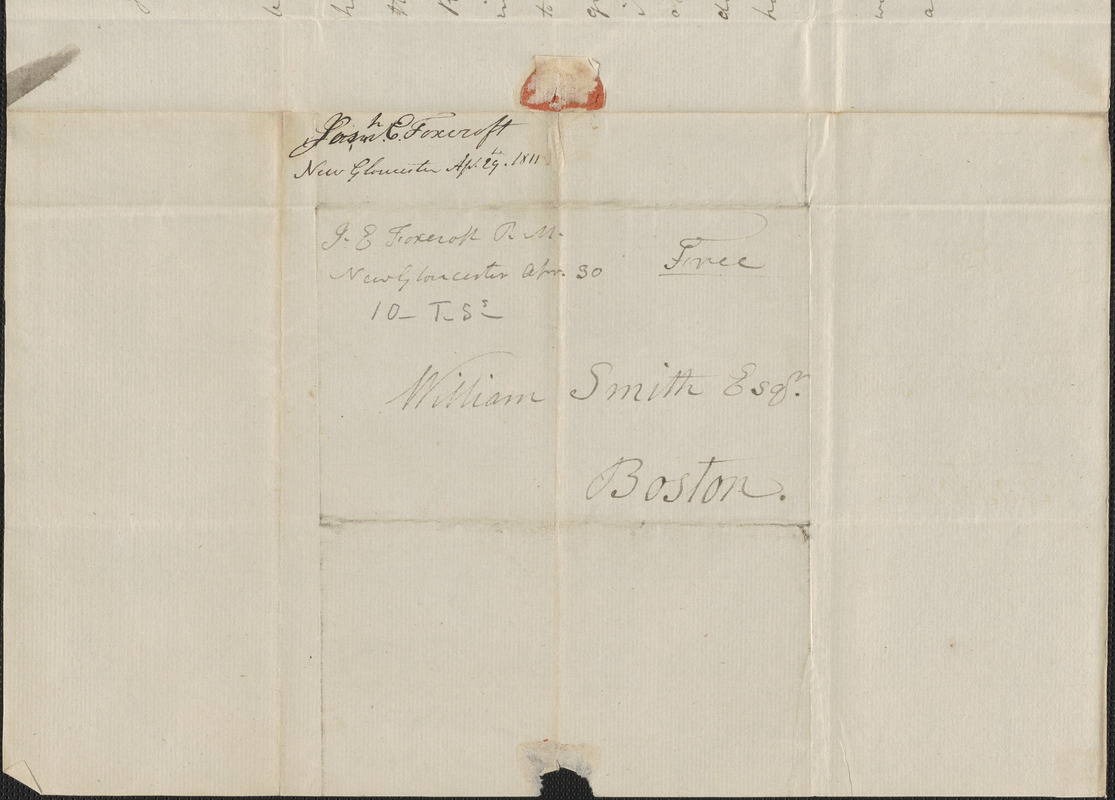 Josh. E. Foxcroft
New Gloucester Ap. 29th. 1811
J. E Foxcroft P. M.
New Gloucester Apr. 30
Free
10 – T. Ss
William Smith Esqr.
Boston.